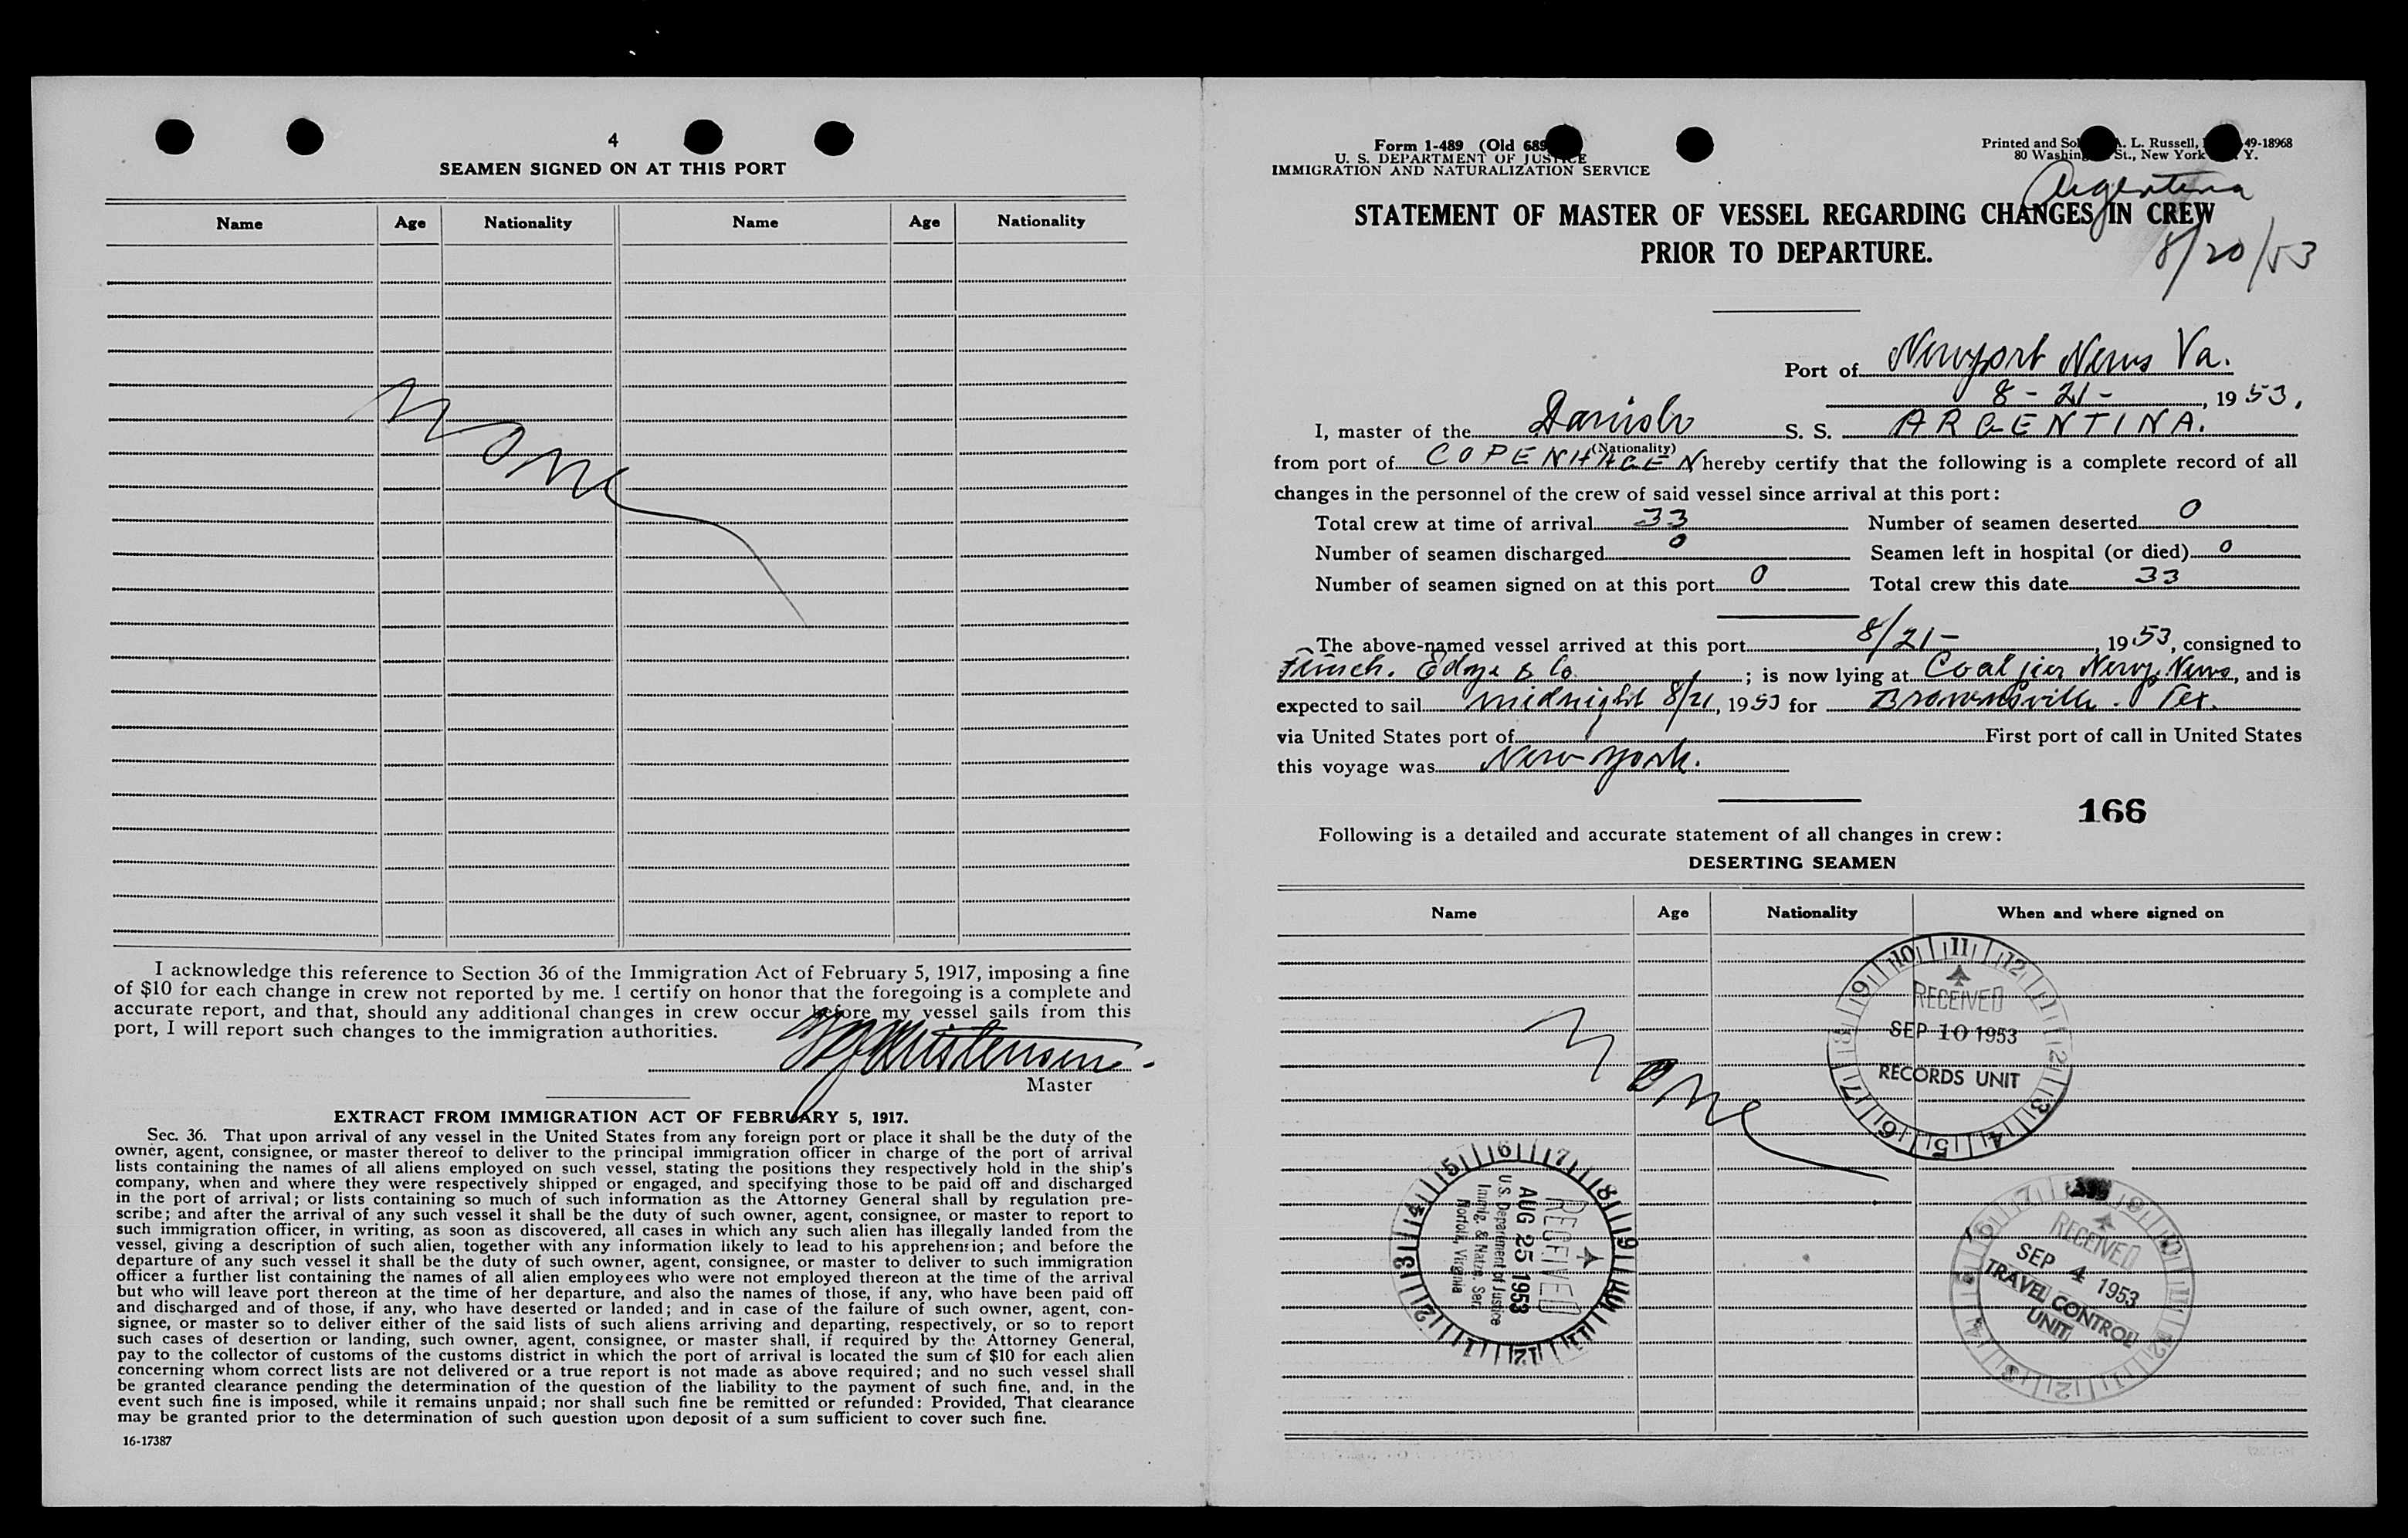 4
SEAMEN SIGNED ON AT THIS PORT
Name Age Nationality Name Age Nationality
None
I acknowledge this reference to Section 36 of the Immigration Act of February 5, 1917, imposing a fine
of $10 for each change in crew not reported by me. I certify on honor that the foregoing is a complete and
accurate report, and that, should any additional changes in crew occur before my vessel sails from this
port, I will report such changes to the immigration authorities.
Master
EXTRACT FROM IMMIGRATION ACT OF FEBRUARY 5, 1917.
Sec. 36. That upon arrival of any vessel in the United States from any foreign port or place it shall be the duty of the
owner, agent, consignee, or master thereof to deliver to the principal immigration officer in charge of the port of arrival
lists containing the names of all aliens employed on such vessel, stating the positions they respectively hold in the ship's
company, when and where they were respectively shipped or engaged, and specifying those to be paid off and discharged
in the port of arrival; or lists containing so much of such information as the Attorney General shall by regulation pre-
scribe; and after the arrival of any such vessel it shall be the duty of such owner, agent, consignee, or master to report to
such immigration officer, in writing, as soon as discovered, all cases in which any such alien has illegally landed from the
vessel, giving a description of such alien, together with any information likely to lead to his apprehension; and before the
departure of any such vessel it shall be the duty of such owner, agent, consignee, or master to deliver to such immigration
officer a further list containing the names of all alien employees who were not employed thereon at the time of the arrival
but who will leave port thereon at the time of her departure, and also the names of those, if any, who have been paid off
and discharged and of those, if any, who have deserted or landed; and in case of the failure of such owner, agent, con-
signee, or master so to deliver either of the said lists of such aliens arriving and departing, respectively, or so to report
such cases of desertion or landing, such owner, agent, consignee, or master shall, if required by the Attorney General,
pay to the collector of customs of the customs district in which the port of arrival is located the sum of $10 for each alien
concerning whom correct lists are not delivered or a true report is not made as above required; and no such vessel shall
be granted clearance pending the determination of the question of the liability to the payment of such fine, and, in the
event such fine is imposed, while it remains unpaid; nor shall such fine be remitted or refunded: Provided, That clearance
may be granted prior to the determination of such question upon deposit of a sum sufficient to cover such fine.
16-17387
Form 1-489 (Old 689
U. S. DEPARTMENT OF JUSTICE
IMMIGRATION AND NATURALIZATION SERVICE
Printed and A. L. Russell, 49-18968
80 St., New York Y.
Argentina
STATEMENT OF MASTER OF VESSEL REGARDING CHANGES IN CREW
PRIOR TO DEPARTURE.
8/20/53
Port of Newport News Va.
8-21-, 1953.
I, master of the Danish S. S. ARGENTINA.
(Nationality)
from port of COPENHAGEN hereby certify that the following is a complete record of all
changes in the personnel of the crew of said vessel since arrival at this port:
Total crew at time of arrival 33 Number of seamen deserted 0
Number of seamen discharged 0 Seamen left in hospital (or died) 0
Number of seamen signed on at this port 0 Total crew this date 33
The above-named vessel arrived at this port 8/21-, 1953, consigned to
Funch. Edye & Co.; is now lying at Coal pier Newp. News, and is
expected to sail midnight 8/21, 1953 for Brownsville. Tex.
via United States port of First port of call in United States
this voyage was New York.
166
Following is a detailed and accurate statement of all changes in crew:
DESERTING SEAMEN
Name Age Nationality When and where signed on
None
RECEIVED
SEP 10 1953
RECORDS UNIT
RECEIVED
AUG 25 1953
U.S. Department of Justice
Immig. & Natze. Ser.
Norfolk, Virginia
RECEIVED
SEP 4 1953
TRAVEL CONTROL
UNIT